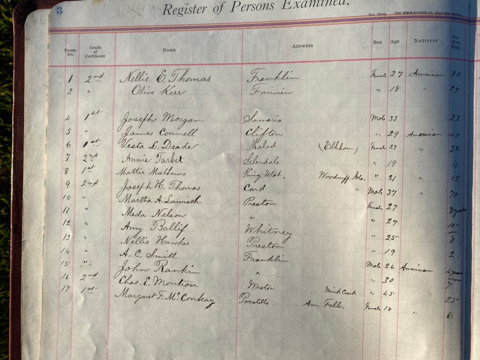 8
Register of Persons Examined,
Exam. No. Grade of Certificate Name Address Sex Age Nativity
1 2nd Nellie E. Thomas Franklin Female 27 American 80
2 " Olive Kerr Fairview " 18 " 27
4 1st Joseph Morgan Samaria Male 33 23
5 " James Connell Clifton " 29 American 45
6 1st Vesta L. Deake (Elkhorn) Female 23 " 32
7 2nd Annie Tarbet Glendale " 19 " 4
8 1st Mattie Mathews King Utah, Woodruff Ida. " 21 " 12
9 2nd Joseph H. Thomas Card Male 37 " 70
10 " Martha A. Preston Female 27
11 " Meda Nelson " " 27
12 " Amy Ballif Whitney " 25 8
13 " Nellie Hawks Preston " 19 2
14 " A. C. Smith Franklin Male 26 American
15 " John Rankin " " 30 " 7
16 2nd Chas. E. Montrose Weston " 45
17 1st Margaret F. McConkay Pocatello Am. Falls. Female 18 " 6